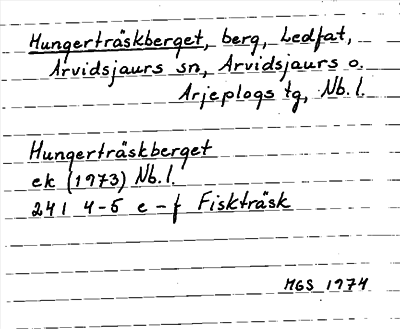 Hungerträskberget, berg, Ledfat,
Arvidsjaurs sn, Arvidsjaurs o.
Arjeplogs tg, Nb. l.
Hungerträskberget
ek (1973) Nb. l.
241 4-5 e-f Fiskträsk
MGS 1974